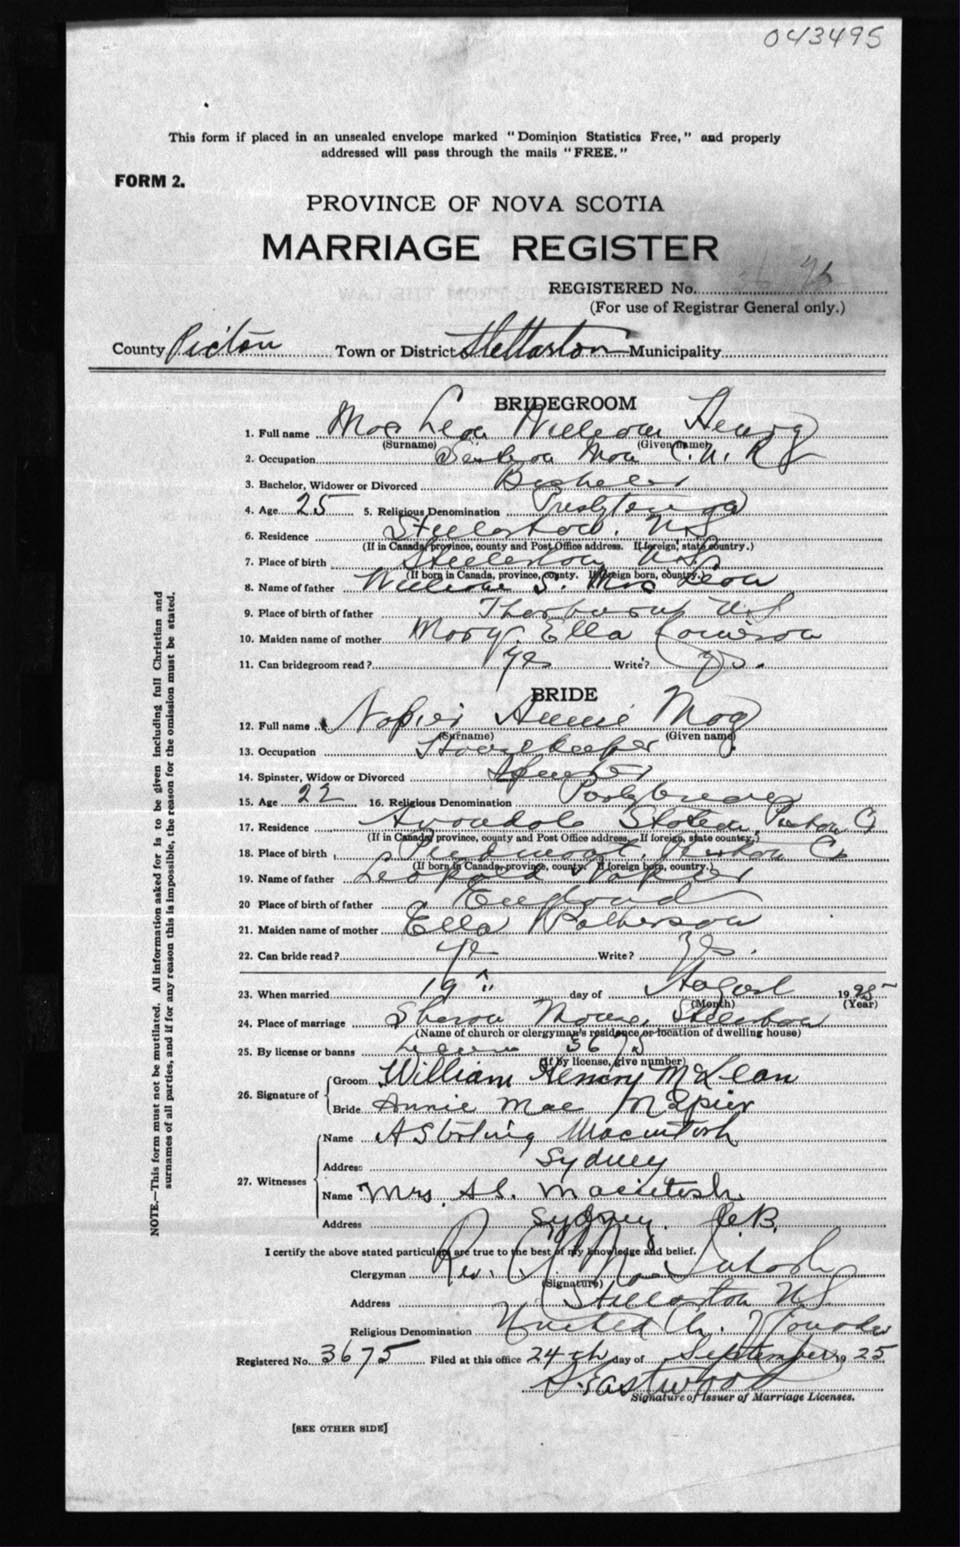 043495
This form if placed in an unsealed envelope marked "Dominion Statistics Free," and properly
addressed will pass through the mails "FREE."
FORM 2.
PROVINCE OF NOVA SCOTIA
MARRIAGE REGISTER
REGISTERED No.
(For use of Registrar General only.)
County Pictou Town or District Stellarton Municipality
BRIDEGROOM
1. Full name Mac Lean William Henry
(Surname) (Given name)
2. Occupation Section Man C.N.R
3. Bachelor, Widower or Divorced Bachelor
4. Age 25 5. Religious Denomination Presbyterian
6. Residence Stellarton. N.S
(If in Canada, province, county and Post Office address. If foreign, state country.)
7. Place of birth Stellarton N.S
(If born in Canada, province, county. If foreign born, country.)
8. Name of father William S. Mac Lean
9. Place of birth of father Thorburn N.S
10. Maiden name of mother Mary Ella Cameron
11. Can bridegroom read? Yes Write? Yes.
BRIDE
12. Full name Napier Annie Mae
(Surname) (Given name)
13. Occupation Housekeeper
14. Spinster, Widow or Divorced Spinster
15. Age 22 16. Religious Denomination Presbyterian
17. Residence Avondale Station Pictou Co
(If in Canada, province, county and Post Office address. If foreign, state country.)
18. Place of birth Piedmont, Pictou Co
(If born in Canada, province, county. If foreign born, country.)
19. Name of father Leopold Napier
20 Place of birth of father England
21. Maiden name of mother Ella Patterson
22. Can bride read? Yes Write? Yes.
23. When married 19th day of August 1925
(Month) (Year)
24. Place of marriage Sharon Manse, Stellarton
(Name of church or clergyman's residence or location of dwelling house)
25. By license or banns License 3675
(If by license, give number)
26. Signature of
Groom William Henry McLean
Bride Annie Mae Napier
27. Witnesses
Name A Stirling Macintosh
Address Sydney
Name Mrs. A.S. Macintosh
Address Sydney, C.B.
I certify the above stated particulars are true to the best of my knowledge and belief.
Clergyman Rev. C. Mac Intosh
(Signature)
Address Stellarton N.S
Religious Denomination United Ch. Canada
Registered No. 3675 Filed at this office 24th day of September 1925
S. Eastwood
Signature of Issuer of Marriage Licenses.
[SEE OTHER SIDE]
NOTE.—This form must not be mutilated. All information asked for is to be given including full Christian and
surnames of all parties, and if for any reason this is impossible, the reason for the omission must be stated.